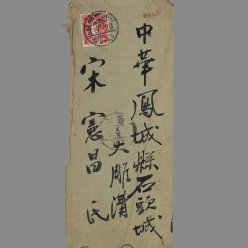 中華鳳城縣石頭城
大雕溝
宋憲昌氏